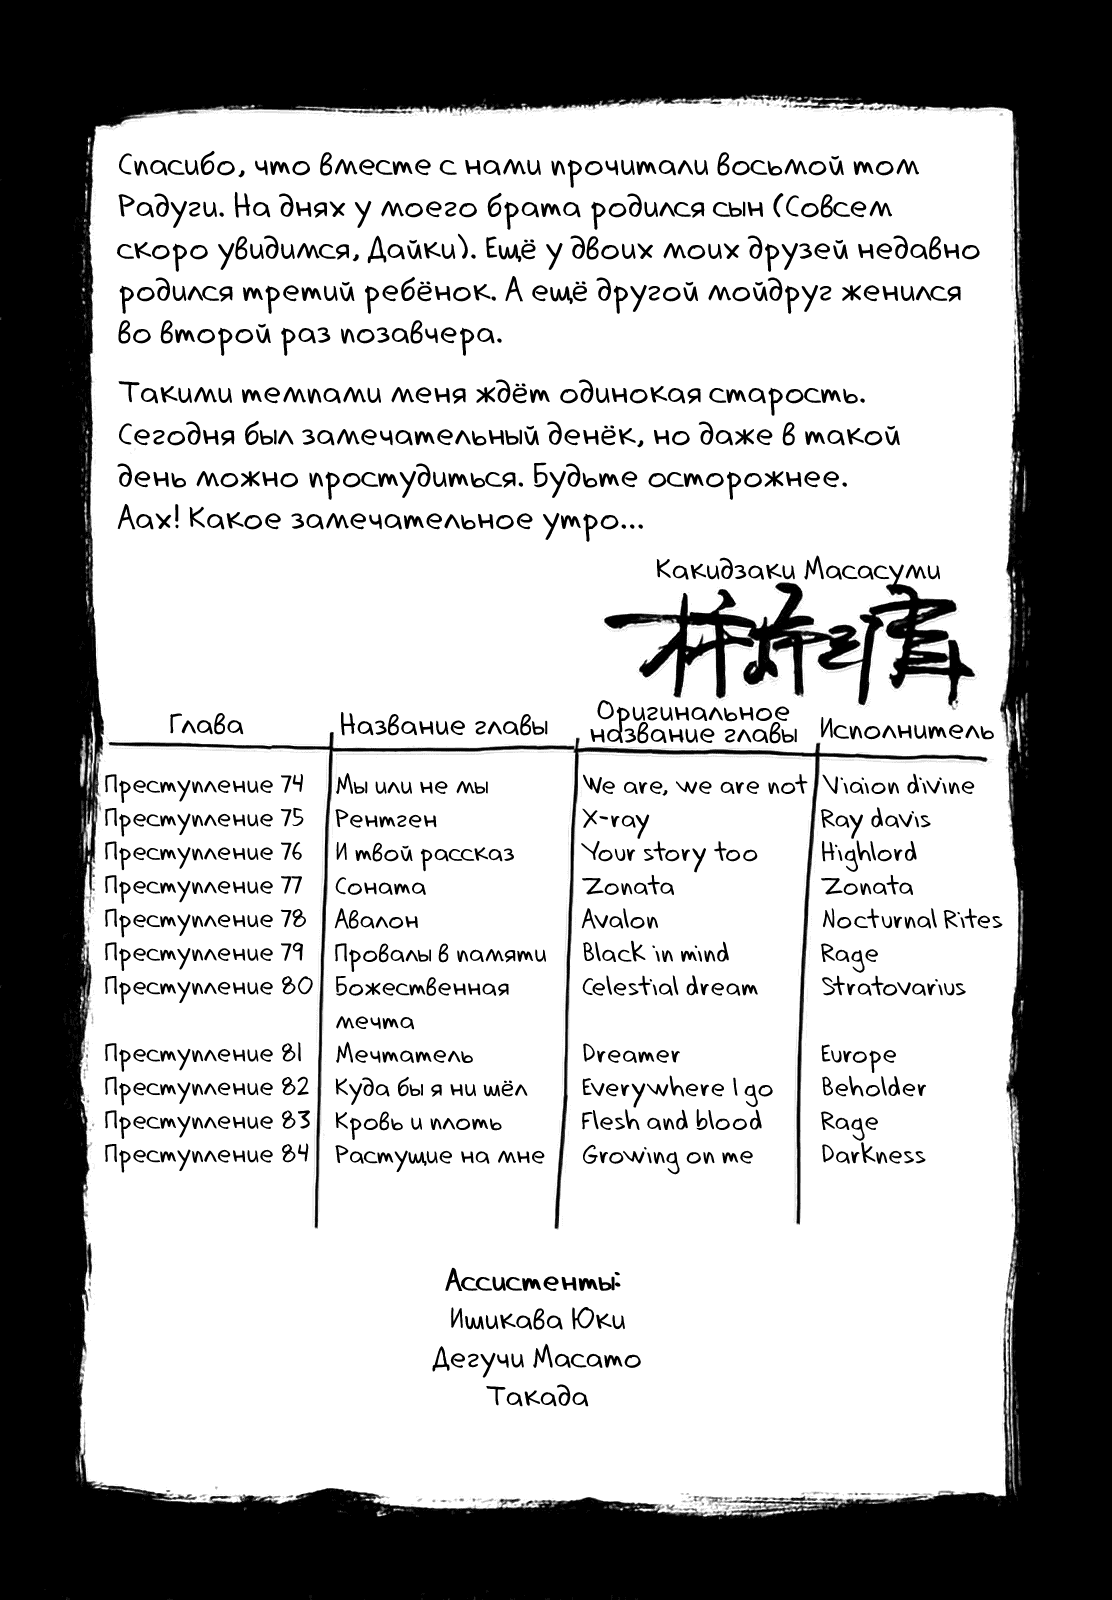 Спасибо, что вместе с нами прочитали восьмой том
Радуги. На днях у моего брата родился сын (Совсем
скоро увидимся, Дайки). Ещё у двоих моих друзей недавно
родился третий ребёнок. А ещё другой мойдруг женился
во второй раз позавчера.
Такими темпами меня ждёт одинокая старость.
Сегодня был замечательный денёк, но даже в такой
день можно простудиться. Будьте осторожнее.
Аах! Какое замечательное утро...
Какидзаки Масасуми
Глава Название главы Оригинальное название главы Исполнитель
Преступление 74 Мы или не мы We are, we are not Viaion divine
Преступление 75 Рентген X-ray Ray davis
Преступление 76 И твой рассказ Your story too Highlord
Преступление 77 Соната Zonata Zonata
Преступление 78 Авалон Avalon Nocturnal Rites
Преступление 79 Провалы в памяти Black in mind Rage
Преступление 80 Божественная Celestial dream Stratovarius
мечта
Преступление 81 Мечтатель Dreamer Europe
Преступление 82 Куда бы я ни шёл Everywhere I go Beholder
Преступление 83 Кровь и плоть Flesh and blood Rage
Преступление 84 Растущие на мне Growing on me Darkness
Ассистенты:
Ишикава Юки
Дегучи Масато
Такада